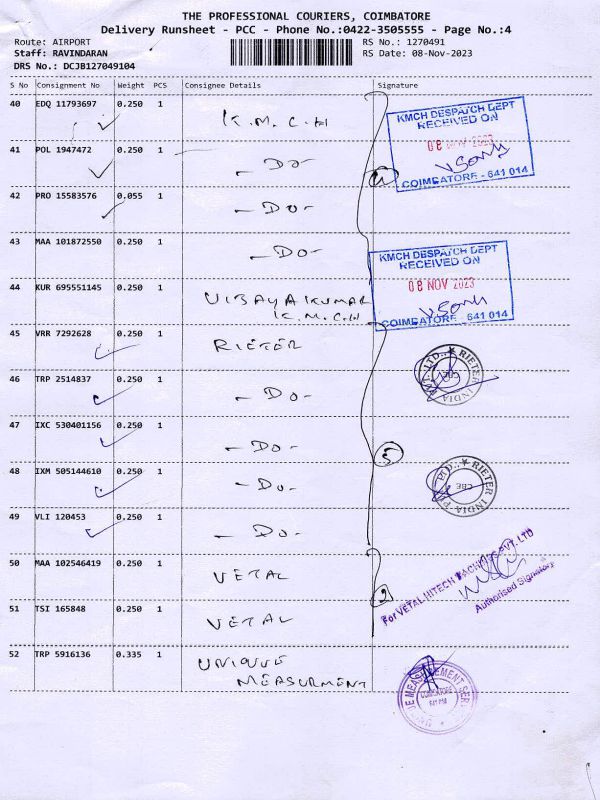 THE PROFESSIONAL COURIERS, COIMBATORE
Delivery Runsheet - PCC - Phone No.:0422-3505555 - Page No.:4
Route: AIRPORT
RS No.: 1270491
Staff: RAVINDARAN
RS Date: 08-Nov-2023
DRS No.: DCJB127049104
S No Consignment No Weight PCS Consignee Details Signature
40 EDQ 11793697 0.250 1 K.M.C.H
KMCH DESPATCH DEPT
RECEIVED ON
08 NOV 2023
COIMBATORE - 641 014
41 POL 1947472 0.250 1 -Do-
42 PRO 15583576 0.055 1 -Do-
43 MAA 101872550 0.250 1 -Do-
KMCH DESPATCH DEPT
RECEIVED ON
08 NOV 2023
COIMBATORE - 641 014
44 KUR 695551145 0.250 1 VIJAYAKUMAR
K.M.C.H
45 VRR 7292628 0.250 1 RIETER
46 TRP 2514837 0.250 1 -Do-
RIETER INDIA PVT. LTD.,
CBE
47 IXC 530401156 0.250 1 -Do-
5
48 IXM 505144610 0.250 1 -Do-
RIETER INDIA
CBE
49 VLI 120453 0.250 1 -Do-
50 MAA 102546419 0.250 1 VETAL
2
For VETAL HITECH MACHINES PVT. LTD
Authorised Signatory
51 TSI 165848 0.250 1 VETAL
52 TRP 5916136 0.335 1 UNIQUE
MEASURMENT
COIMBATORE